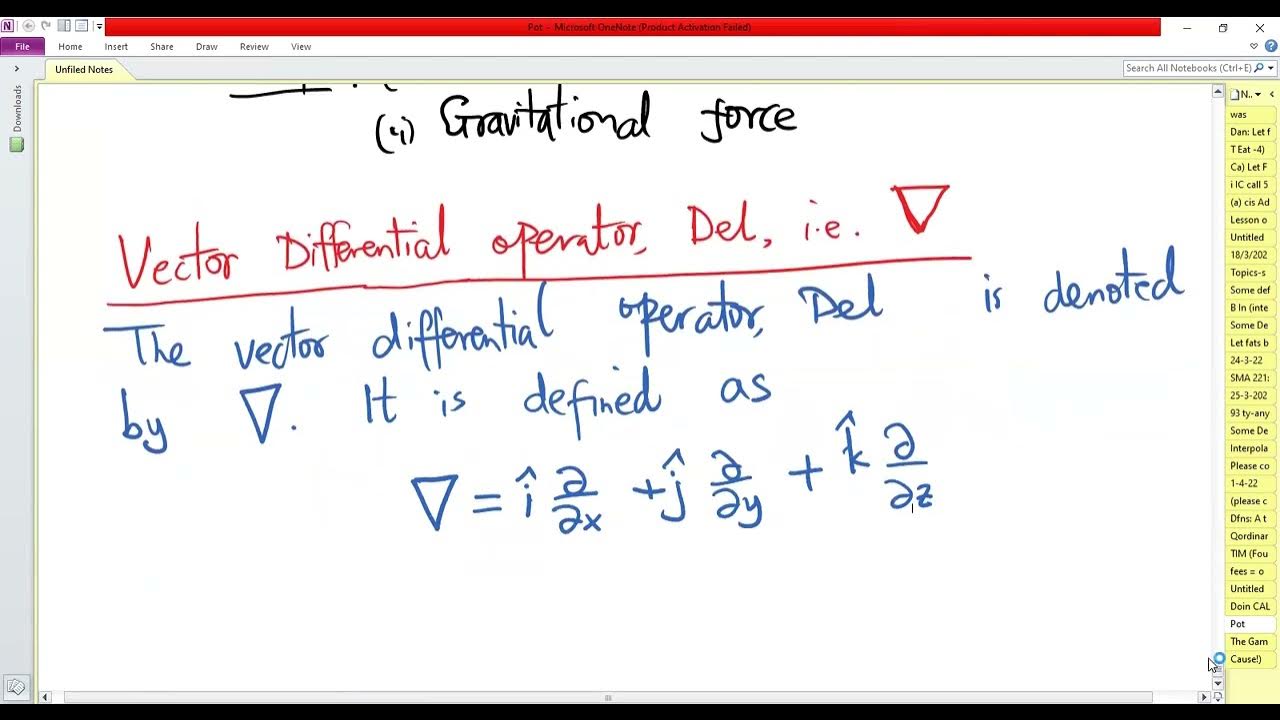 Pot - Microsoft OneNote (Product Activation Failed)
File Home Insert Share Draw Review View
Unfiled Notes
Search All Notebooks (Ctrl+E)
Downloads
N..
(ii) Gravitational force
Vector Differential operator, Del, i.e. ∇
The vector differential operator, Del is denoted
by ∇. It is defined as
∇ = î ∂/∂x + ĵ ∂/∂y + k̂ ∂/∂z
was
Dan: Let f
T Eat -4)
Ca) Let F
i IC call 5
(a) cis Ad
Lesson o
Untitled
18/3/202
Topics-s
Some def
B In (inte
Some De
Let fats b
24-3-22
SMA 221:
25-3-202
93 ty-any
Some De
Interpola
Please co
1-4-22
(please c
Dfns: A t
Qordinar
TIM (Fou
fees = o
Untitled
Doin CAL
Pot
The Gam
Cause!)